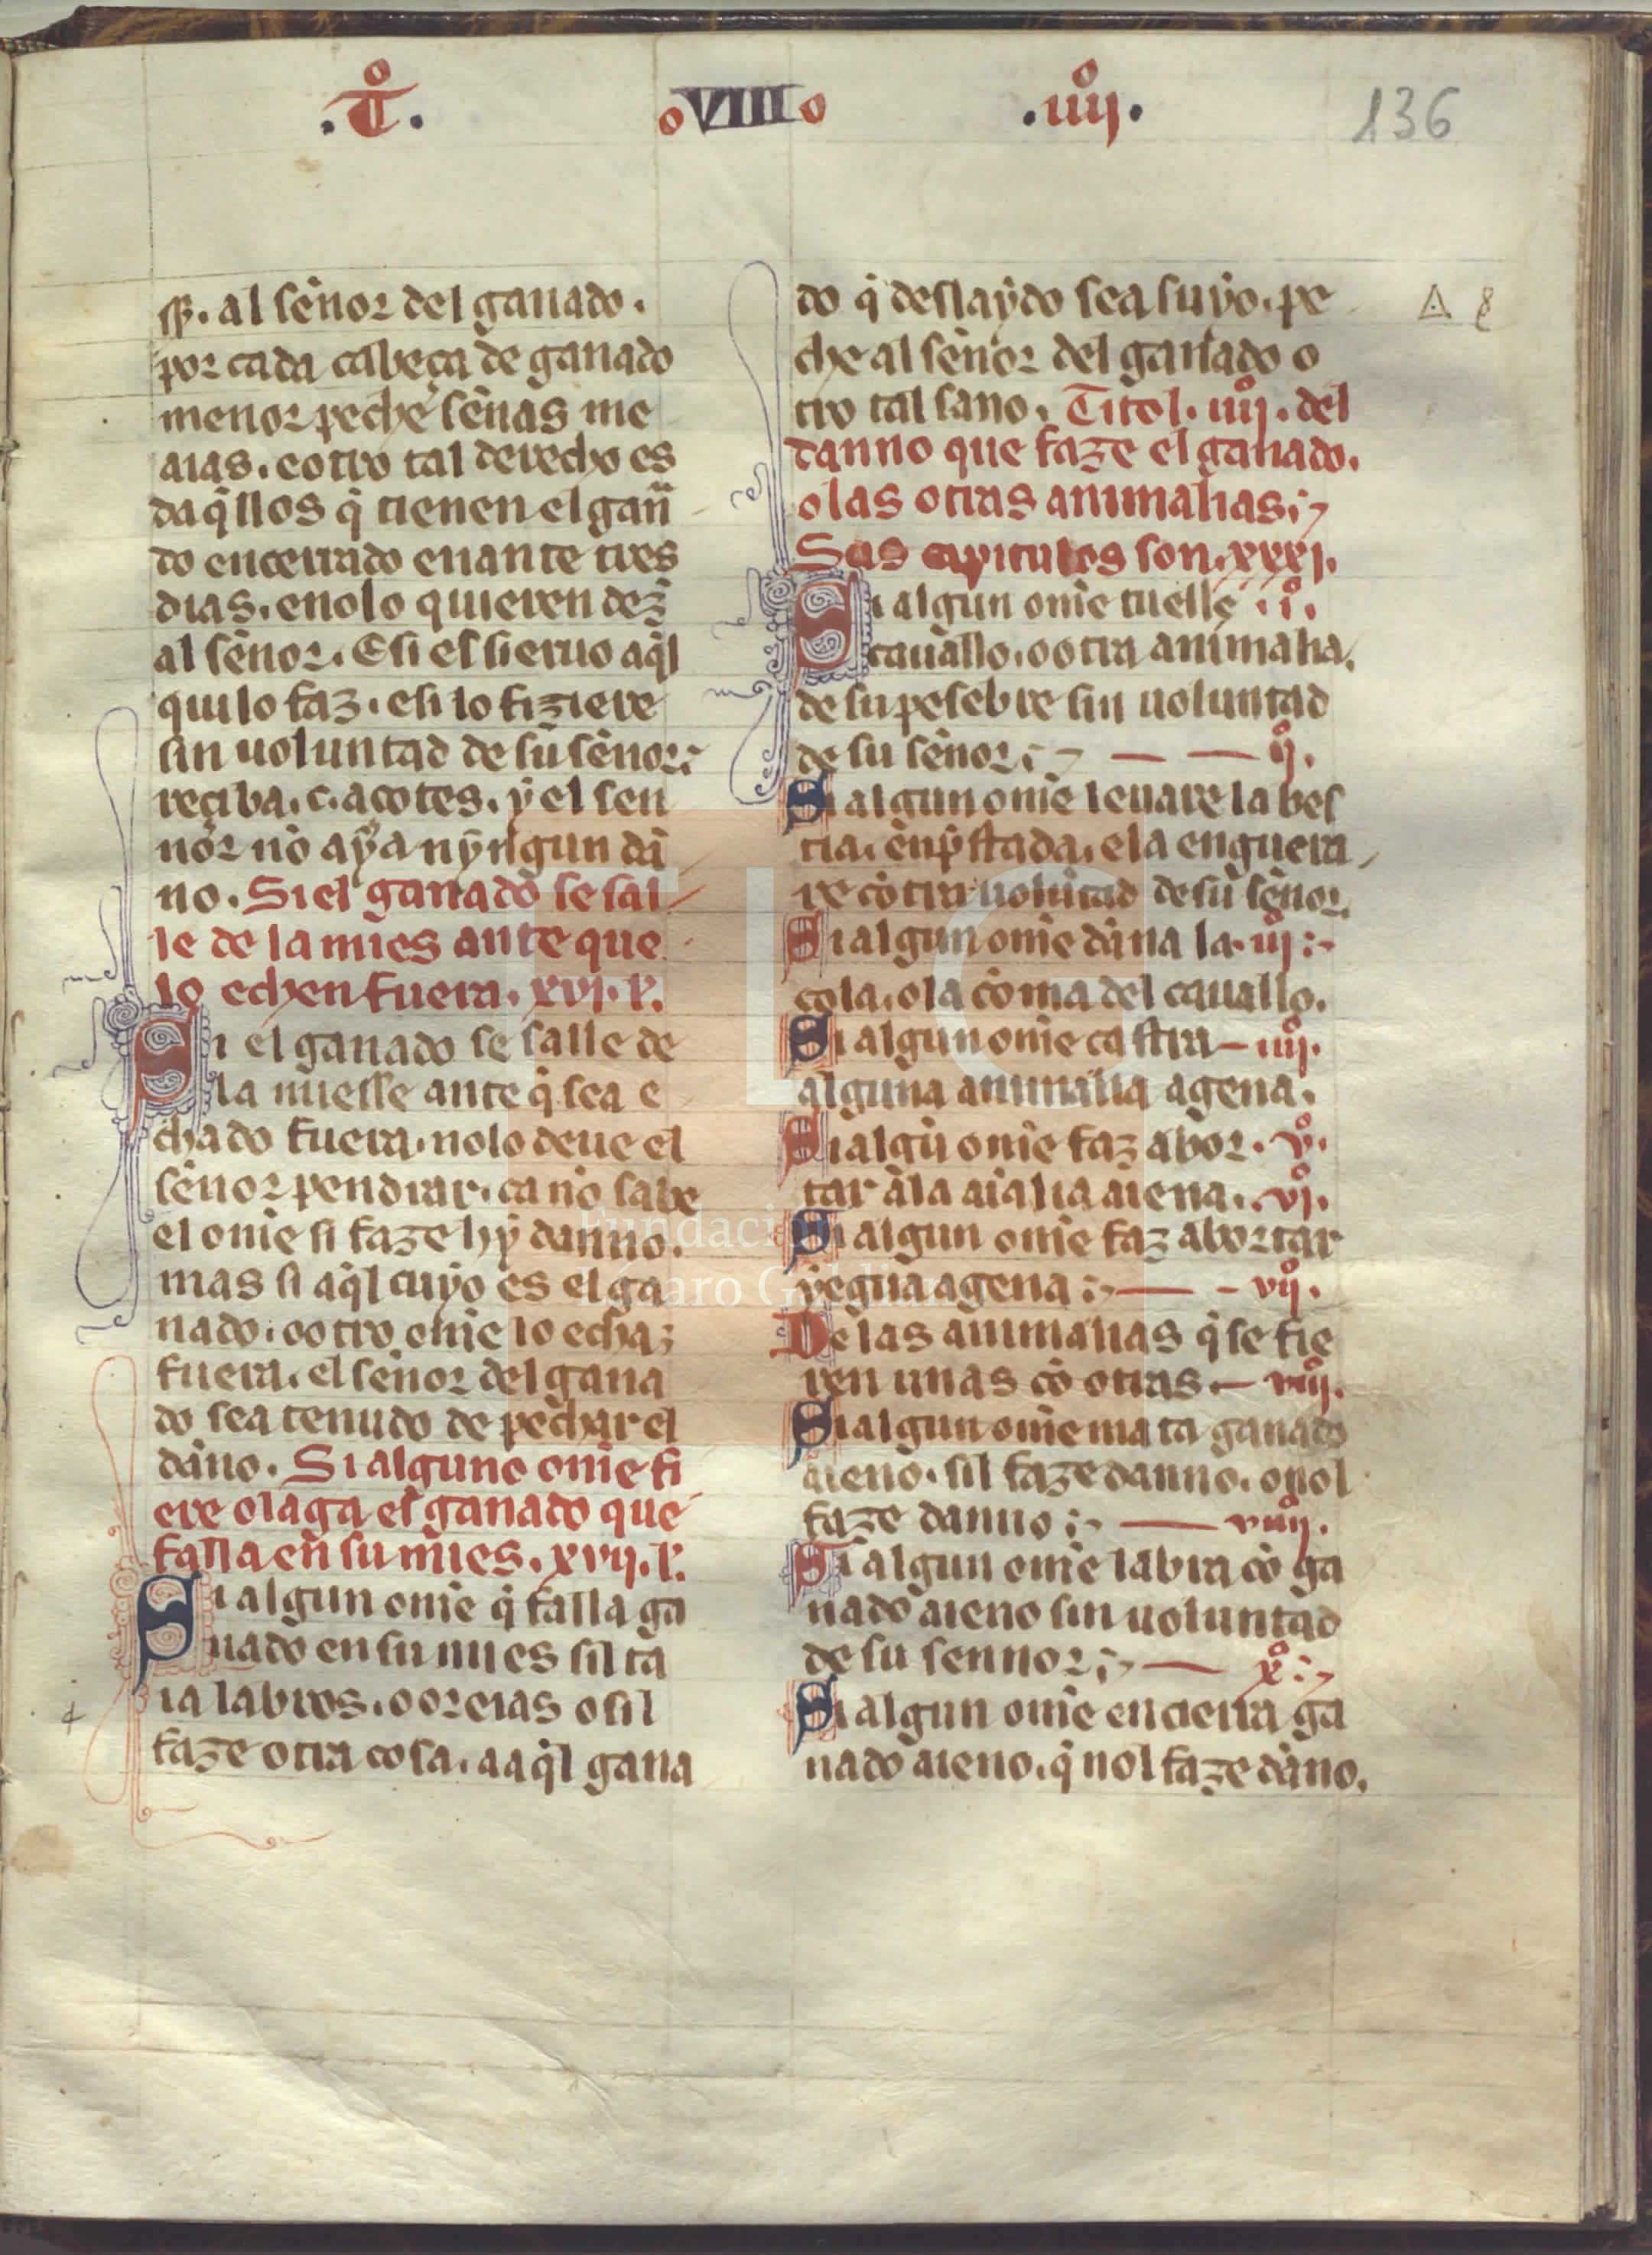 .T͛o. oVIIIo .iiijº. 136
ss. al sen̄or del ganado.
por cada cabeça de ganado
menor peche sen̄as me
aias. e otro tal derecho es
daq̇llos q̇ tienen el gan̄
do encerrado en ante tres
dias. e no lo quieren dez̄
al sen̄or. E si es sieruo aq̇l
qui lo faz. e si lo fiziere
sin uoluntad de su sen̄or:
reçiba. c. açotes. ẏ el sen
nor nō aẏa nẏngun dā
no. Si el ganado se sal
le de la mies ante que
lo echen fuera. xvj. k̄.
Si el ganado se salle de
la miesse ante q̇ sea e
chado fuera. no lo deue el
sen̄or pendrar. ca nō sabe
el om̄e si faze hẏ danno.
mas si aq̇l cuẏo es el ga
nado. o otro om̄e lo echa;
fuera. el sen̄or del gana
do sea tenudo de pechar el
dāno. Si alguno om̄e fi
ere o laga el ganado que
falla en su mies. xvij. k̄.
Si algun om̄e q̇ falla ga
nado en su mies sil ta
ia labros. o oreias o sil
faze otra cosa. a aq̇l gana
do q̇ deslaẏdo sea suẏo. pe
che al sen̄or del ganado o
tro tal sano. Titol. iiijº. del
danno que faze el ganado.
o las otras animalias:~
Sus capitulos son. xxxj.
Si algun om̄e tuelle .iº.
cauallo. o otra animalia.
de su pesebre sin uoluntad
de su sen̄or:~ — — ijº.
Si algun om̄e leuare la bes
tia. enp̄stada. e la enguera
re cōtra uolūtad de su sen̄or.
Si algun om̄e dāna la. iijº:~
cola. o la coma del cauallo.
Si algun om̄e castra— iiijº.
alguna animalia agena.
Si algū om̄e faz abor. vº.
tar a la aīalia aiena. vjº.
Si algun om̄e faz abortar
ẏegua agena:~— - vijº.
De las animalias q̇ se fie
ren unas cō otras.— viijº.
Si algun om̄e mata ganado
aieno. sil faze danno. o nol
faze danno:~ — viiijº.
Si algun om̄e labra cō ga
nado aieno sin uoluntad
de su sennor:~— xº:~
Si algun om̄e encierra ga
nado aieno. q̇ nol faze dāno.
Fundación
Lázaro Galdiano
FLG